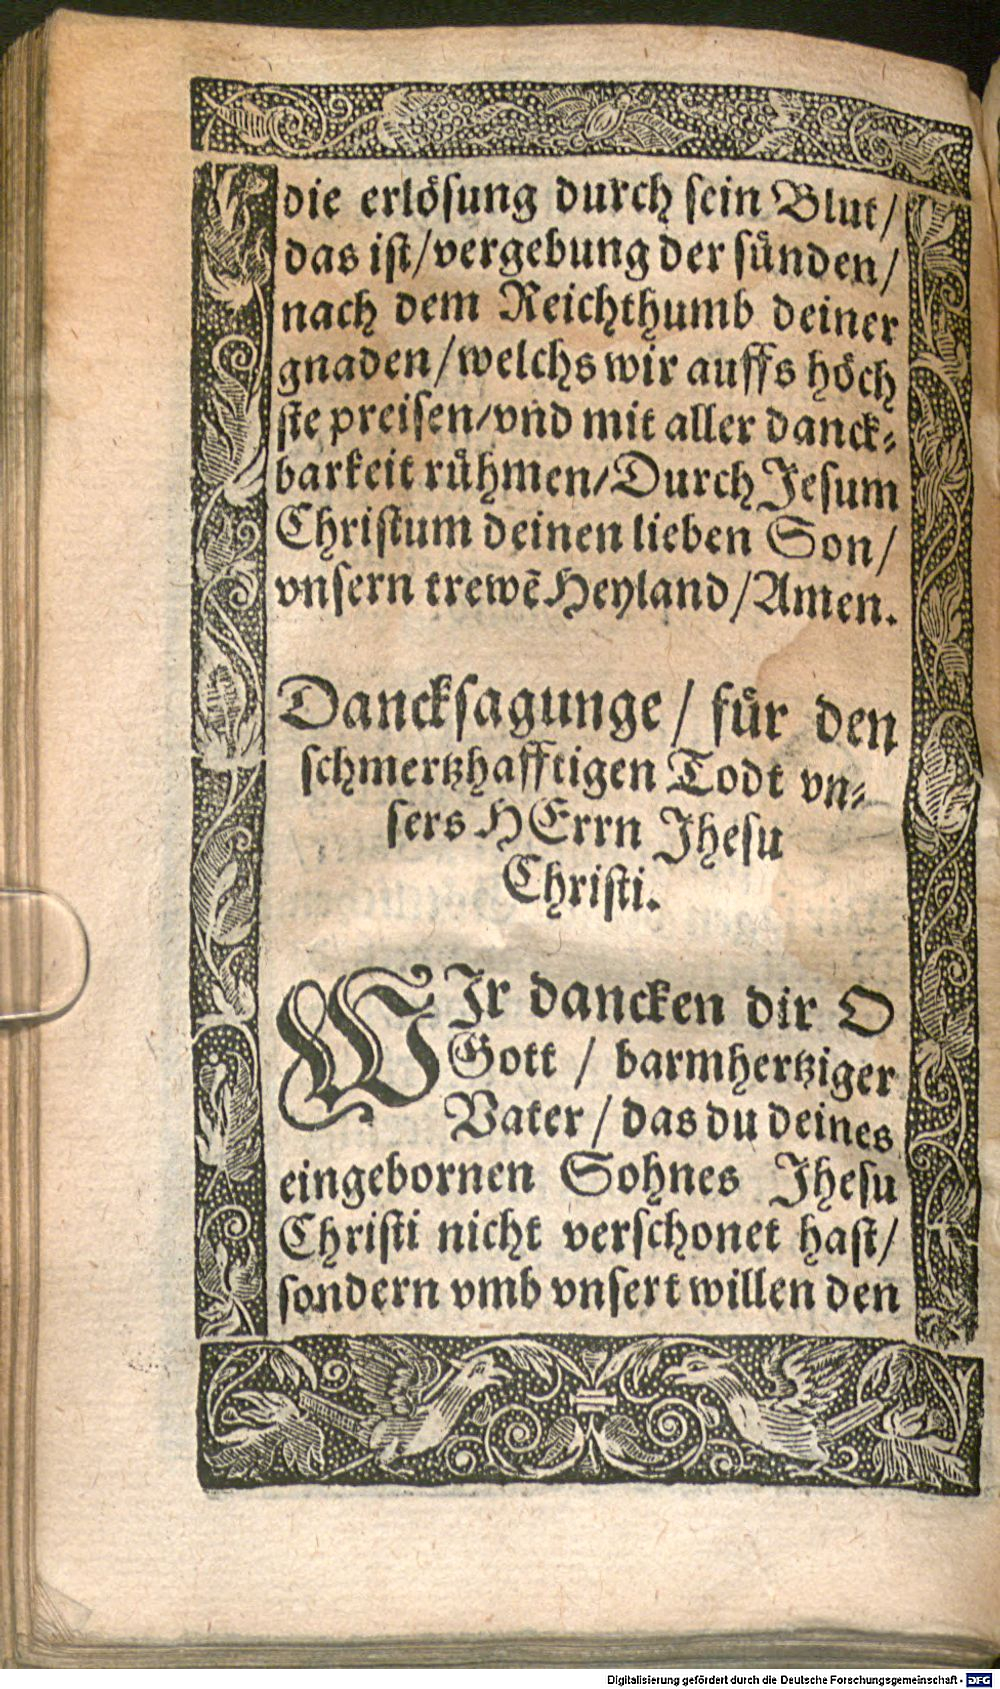 die erlösung durch sein Blut/
das ist/vergebung der sünden/
nach dem Reichthumb deiner
gnaden/welchs wir auffs höch
ste preisen/vnd mit aller danck-
barkeit rühmen/Durch Jesum
Christum deinen lieben Son/
vnsern trewē Heyland/Amen.
Dancksagunge/ für den
schmertzhafftigen Todt vn-
sers HErrn Jhesu
Christi.
WIr dancken dir O
Gott / barmhertziger
Vater / das du deines
eingebornen Sohnes Jhesu
Christi nicht verschonet hast/
sondern vmb vnsert willen den
Digitalisierung gefördert durch die Deutsche Forschungsgemeinschaft - DFG